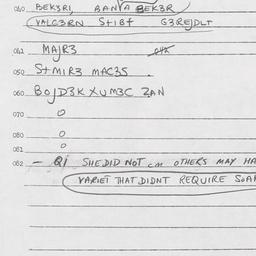 040 BEK3RI, BANVA BEK3R
VALC3RN S+IBF G3REJDLT
042 MAJR3
050 S+MIR3 MAC3S .
060 BOJD3K XUM3C ZAN
070 O
080 O
081 O
082 - Q1 SHE DID NOT cm OTHERS MAY HA
VARIET THAT DIDNT REQUIRE SOA